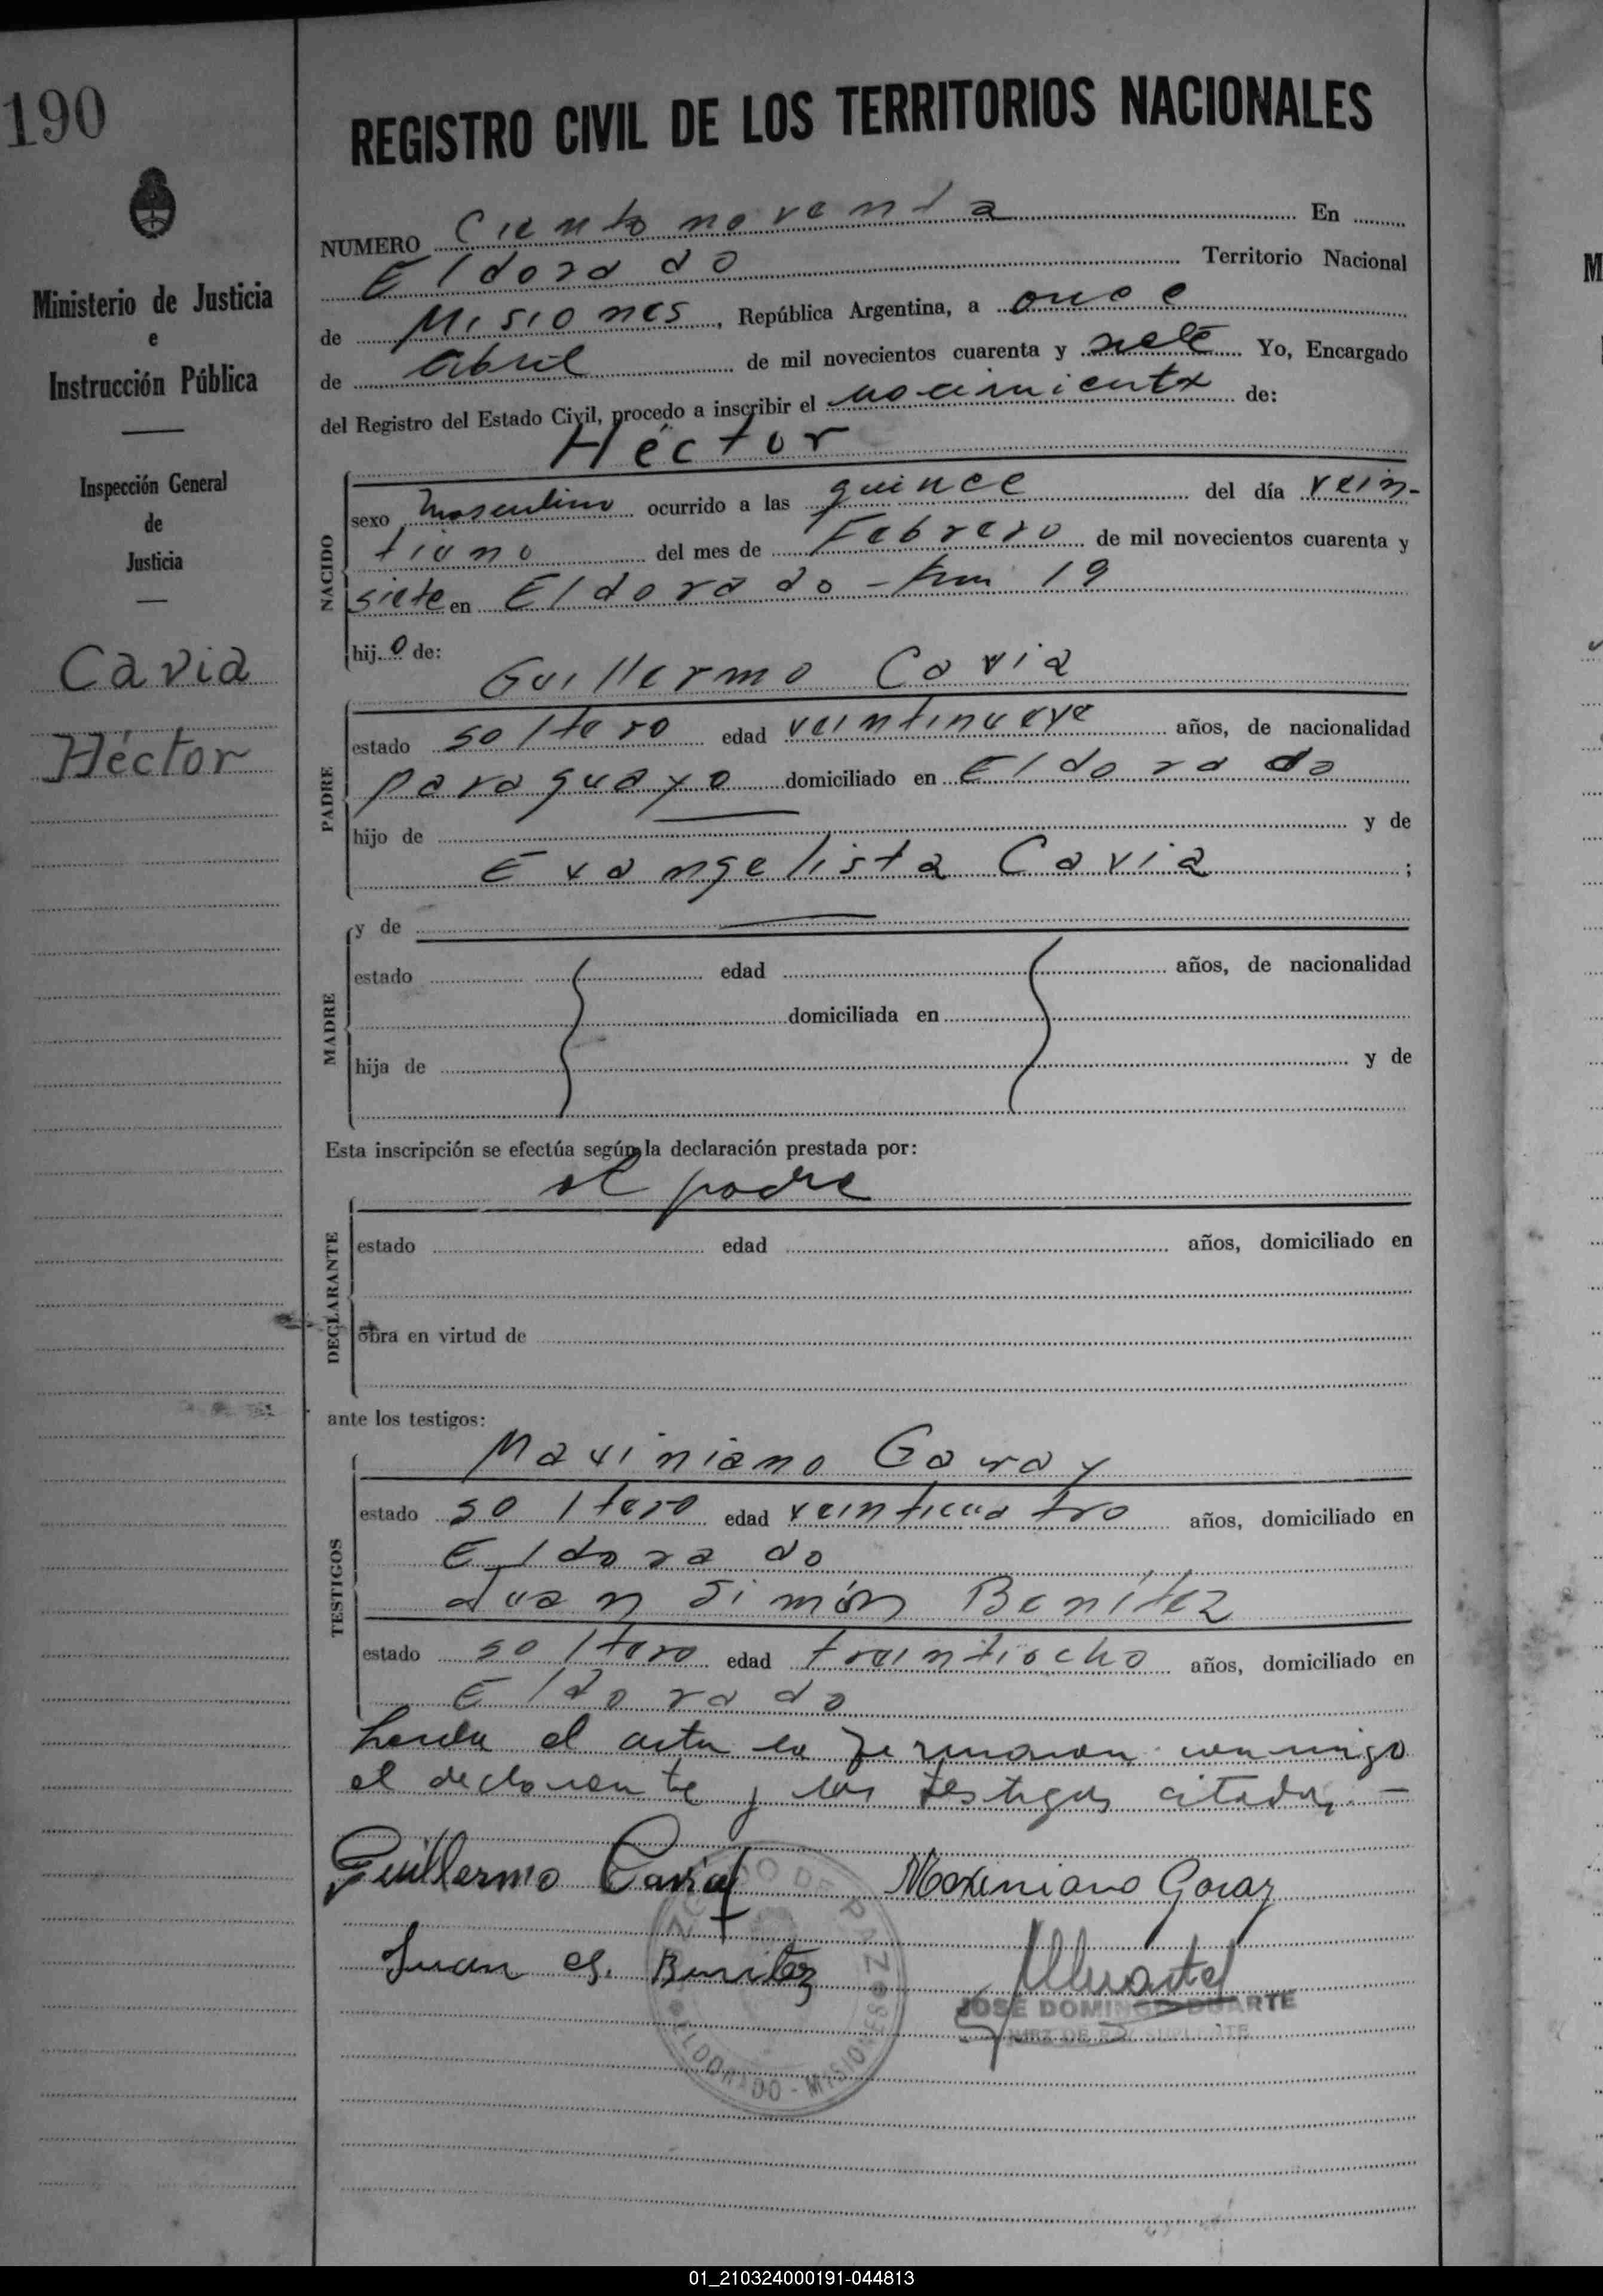 190
Ministerio de Justicia
e
Instrucción Pública
Inspección General
de
Justicia
Cavia
Héctor
REGISTRO CIVIL DE LOS TERRITORIOS NACIONALES
NUMERO Ciento noventa En
Eldorado Territorio Nacional
de Misiones, República Argentina, a once
de abril de mil novecientos cuarenta y siete Yo, Encargado
del Registro del Estado Civil, procedo a inscribir el nacimiento de:
Héctor
NACIDO
sexo masculino ocurrido a las quince del día vein-
tiuno del mes de Febrero de mil novecientos cuarenta y
siete en Eldorado - km 19
hijo de:
Guillermo Cavia
PADRE
estado soltero edad veintinueve años, de nacionalidad
paraguayo domiciliado en Eldorado
hijo de y de
Evangelista Cavia ;
MADRE
y de
estado edad años, de nacionalidad
domiciliada en
hija de y de
Esta inscripción se efectúa según la declaración prestada por:
el padre
DECLARANTE
estado edad años, domiciliado en
obra en virtud de
ante los testigos:
Maximiano Garay
TESTIGOS
estado soltero edad veinticuatro años, domiciliado en
Eldorado
Juan Simón Benítez
estado soltero edad treintiocho años, domiciliado en
Eldorado
Leída el acta la firmaron conmigo
el declarante y los testigos citados.-
Guillermo Cavia Maximiano Garay
Juan S. Benitez
JOSE DOMINGO DUARTE
JUEZ DE PAZ SUPLENTE
JUZGADO DE PAZ
ELDORADO - MISIONES
01_210324000191-044813